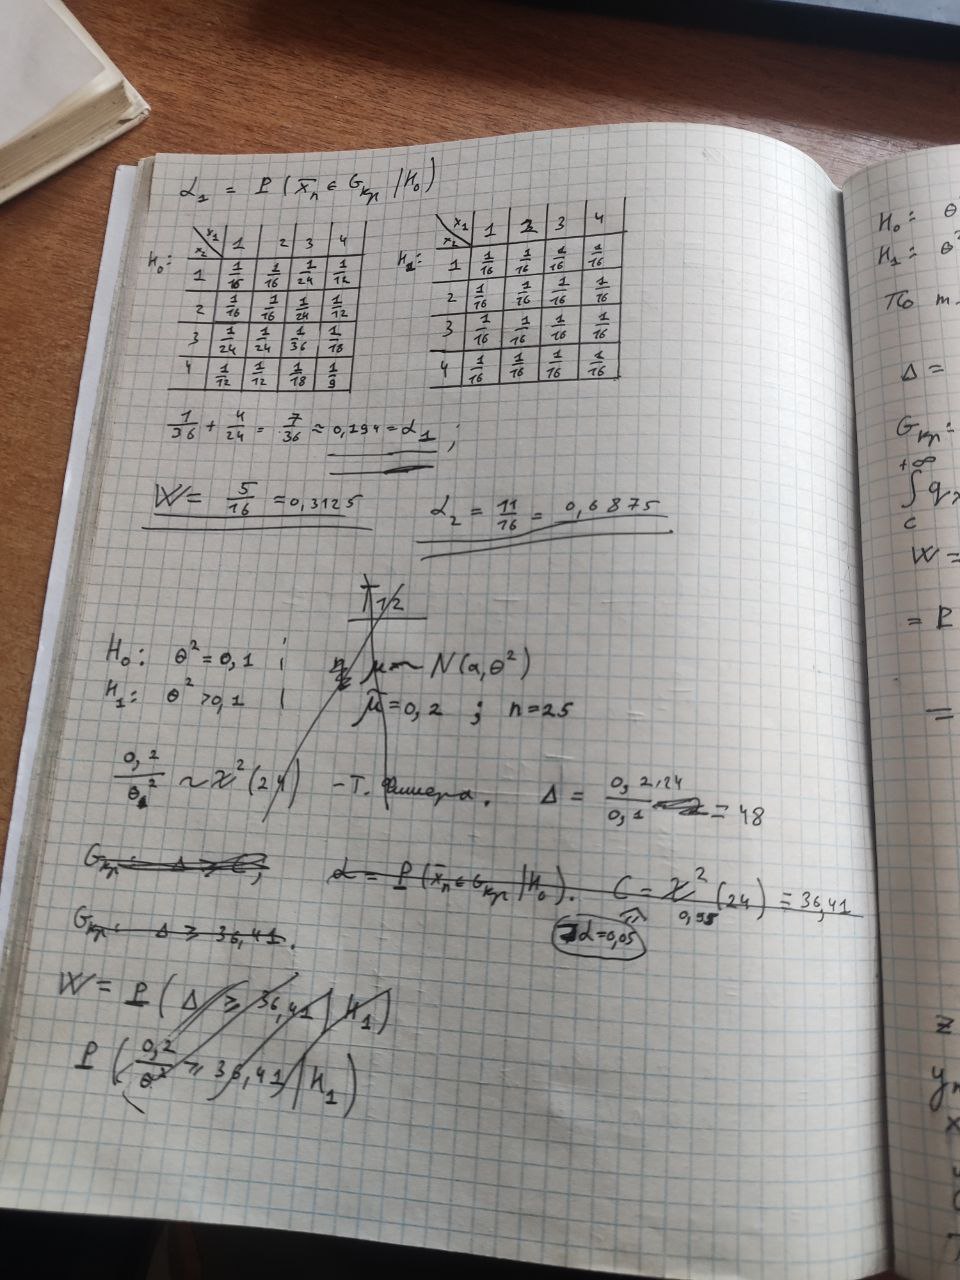 α₁ = P (x̄ₙ ∈ Gкр | H₀)
H₀: x₂ \ x₁ | 1 | 2 | 3 | 4
1 | 1/16 | 1/16 | 1/24 | 1/12
2 | 1/16 | 1/16 | 1/24 | 1/12
3 | 1/24 | 1/24 | 1/36 | 1/18
4 | 1/12 | 1/12 | 1/18 | 1/9
H₁: x₂ \ x₁ | 1 | 2 | 3 | 4
1 | 1/16 | 1/16 | 1/16 | 1/16
2 | 1/16 | 1/16 | 1/16 | 1/16
3 | 1/16 | 1/16 | 1/16 | 1/16
4 | 1/16 | 1/16 | 1/16 | 1/16
1/36 + 4/24 = 7/36 ≈ 0,194 = α₁ ;
W = 5/16 ≈ 0,3125
α₂ = 11/16 = 0,6875
T12
H₀: θ² = 0,1 ; μ ~ N(a, θ²)
H₁: θ² > 0,1 ; μ̄ = 0,2 ; n = 25
0,2/θ² ~ χ²(24) - Т. Фишера. Δ = 0,2·24/0,1 = 48
Gкр: Δ ≥ C;
α = P (x̄ₙ ∈ Gкр | H₀). C = χ²₀,₉₅ (24) = 36,41
α = 0,05
Gкр: Δ ≥ 36,41.
W = P (Δ ≥ 36,41 | H₁)
P (0,2/θ² ≥ 36,41 | H₁)
H₀: θ
H₁: θ²
По т.
Δ =
Gкр:
+∞
∫ q
c
W =
= P
=
z
y
x